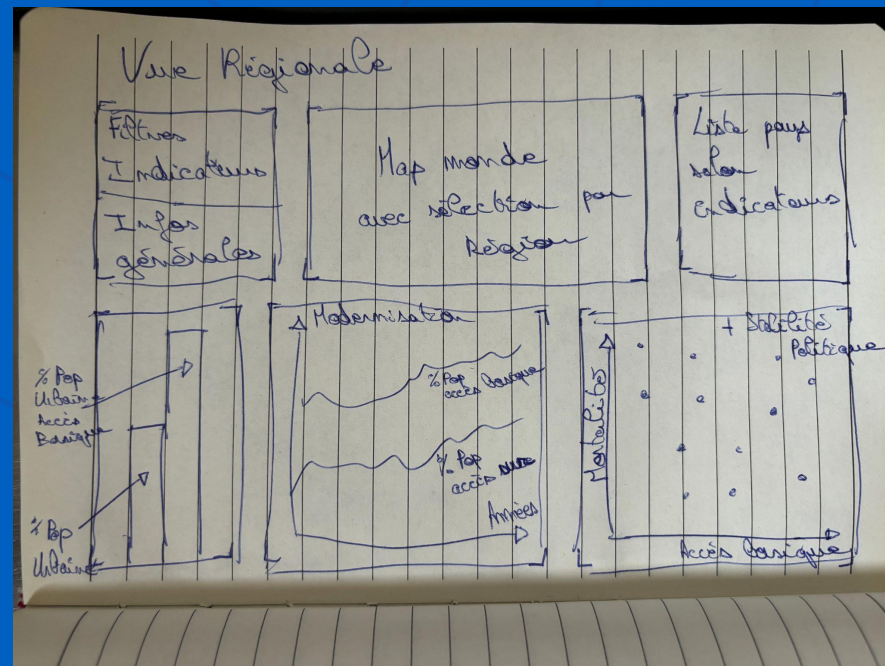 Vue Régionale
Filtres
Indicateurs
Infos
générales
Map monde
avec sélection par
Région
Liste pays
selon
indicateurs
% Pop
Urbaine
Accès
Basique
% Pop
Urbaine
Modernisation
% Pop
accès basique
% Pop
accès sure
Années
+ Stabilité
Politique
Mortalité
Accès basique